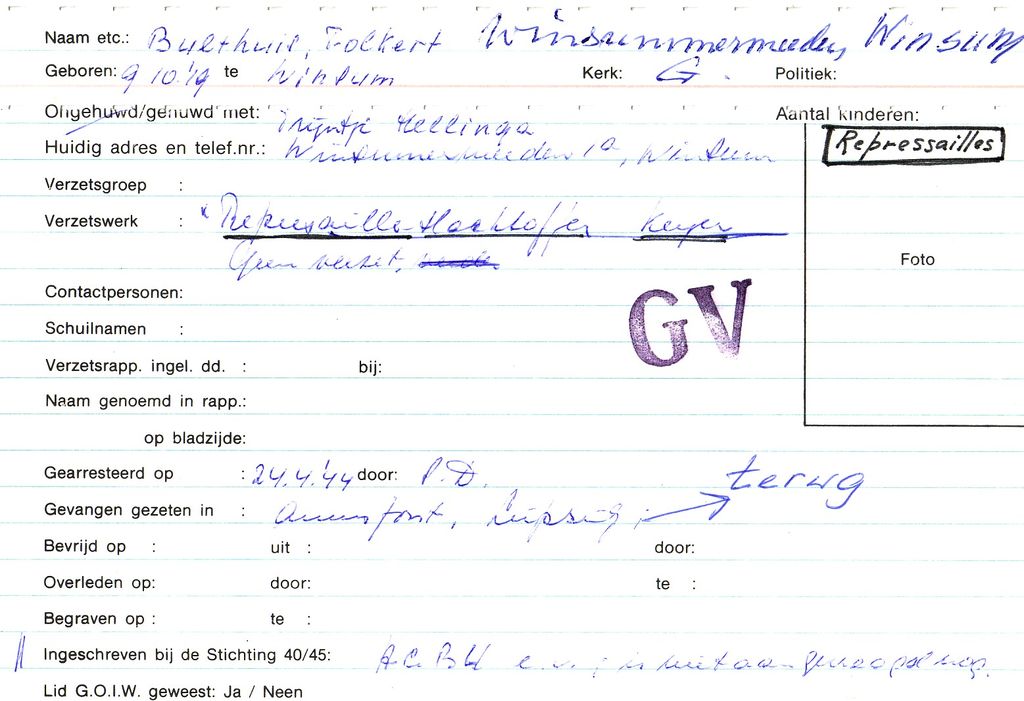 Naam etc.: Bulthuis, Folkert Winsummermeeden, Winsum
Geboren: 9 10.'19 te Winsum Kerk: G. Politiek:
Ongehuwd/gehuwd met: Trijntje Hellinga Aantal kinderen:
Huidig adres en telef.nr.: Winsummermeeden 1a, Winsum
Repressailles
Verzetsgroep :
Verzetswerk : x Repressaille slachtoffer
Geen verzet,
Foto
Contactpersonen:
GV
Schuilnamen :
Verzetsrapp. ingel. dd. : bij:
Naam genoemd in rapp.:
op bladzijde:
Gearresteerd op : 24.4.'44 door: P.D.
terwg
Gevangen gezeten in : Amersfoort, Leipzig
Bevrijd op : uit : door:
Overleden op: door: te :
Begraven op : te :
Ingeschreven bij de Stichting 40/45:
Lid G.O.I.W. geweest: Ja / Neen